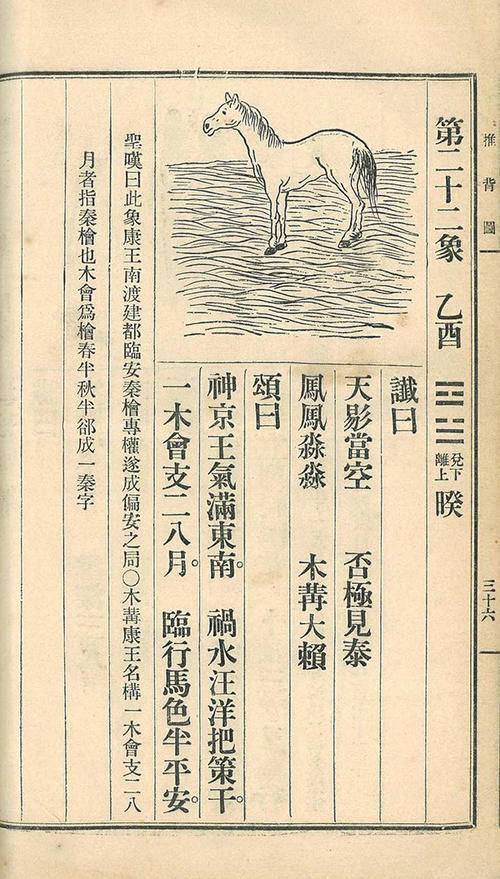 推背圖
三十六
第二十二象 乙酉 ☲☱ 兌下離上 暌
讖曰
天影當空 否極見泰
鳳鳳淼淼 木冓大賴
頌曰
神京王氣滿東南。 禍水汪洋把策干。
一木會支二八月。 臨行馬色半平安。
聖嘆曰此象康王南渡建都臨安秦檜專權遂成偏安之局〇木冓康王名構一木會支二八
月者指秦檜也木會爲檜春半秋半卻成一秦字